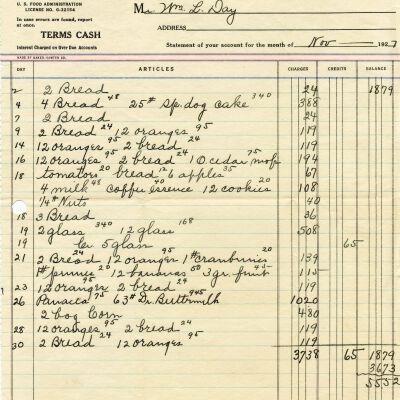 U. S. FOOD ADMINISTRATION
LICENSE NO. G-32154
In case errors are found, report at once.
TERMS CASH
Interest Charged on Over Due Accounts
Mr Wm. L. Day
ADDRESS
Statement of your account for the month of Nov 1927
DAY ARTICLES CHARGES CREDITS BALANCE
2 2 Bread 24 1879
4 4 Bread 48 25# Sp. dog cake 340 388
7 2 Bread 24
9 2 Bread 24 12 oranges 95 119
14 12 oranges 95 2 bread 24 119
16 12 oranges 95 2 bread 24 1 O. cedar mop 194
18 tomatoes 20 bread 12 6 apples 35 67
4 milk 48 Coffee essence 40 12 cookies 20 108
1/4# Nuts 40
18 3 Bread 36
19 2 glass 340 12 glass 168 508
19 Cr 5 glass 65
21 2 Bread 24 12 oranges 95 1# cranburries 20 139
1# prunes 20 12 bananas 50 3 gr. fruit 45 115
23 12 oranges 95 2 bread 24 119
26 Panacea 75 63# Dr. Buttermilk 945 1020
2 bag Corn 480
28 12 oranges 95 2 bread 24 119
30 2 Bread 24 12 oranges 95 119
3738 65 1879
3673
5552